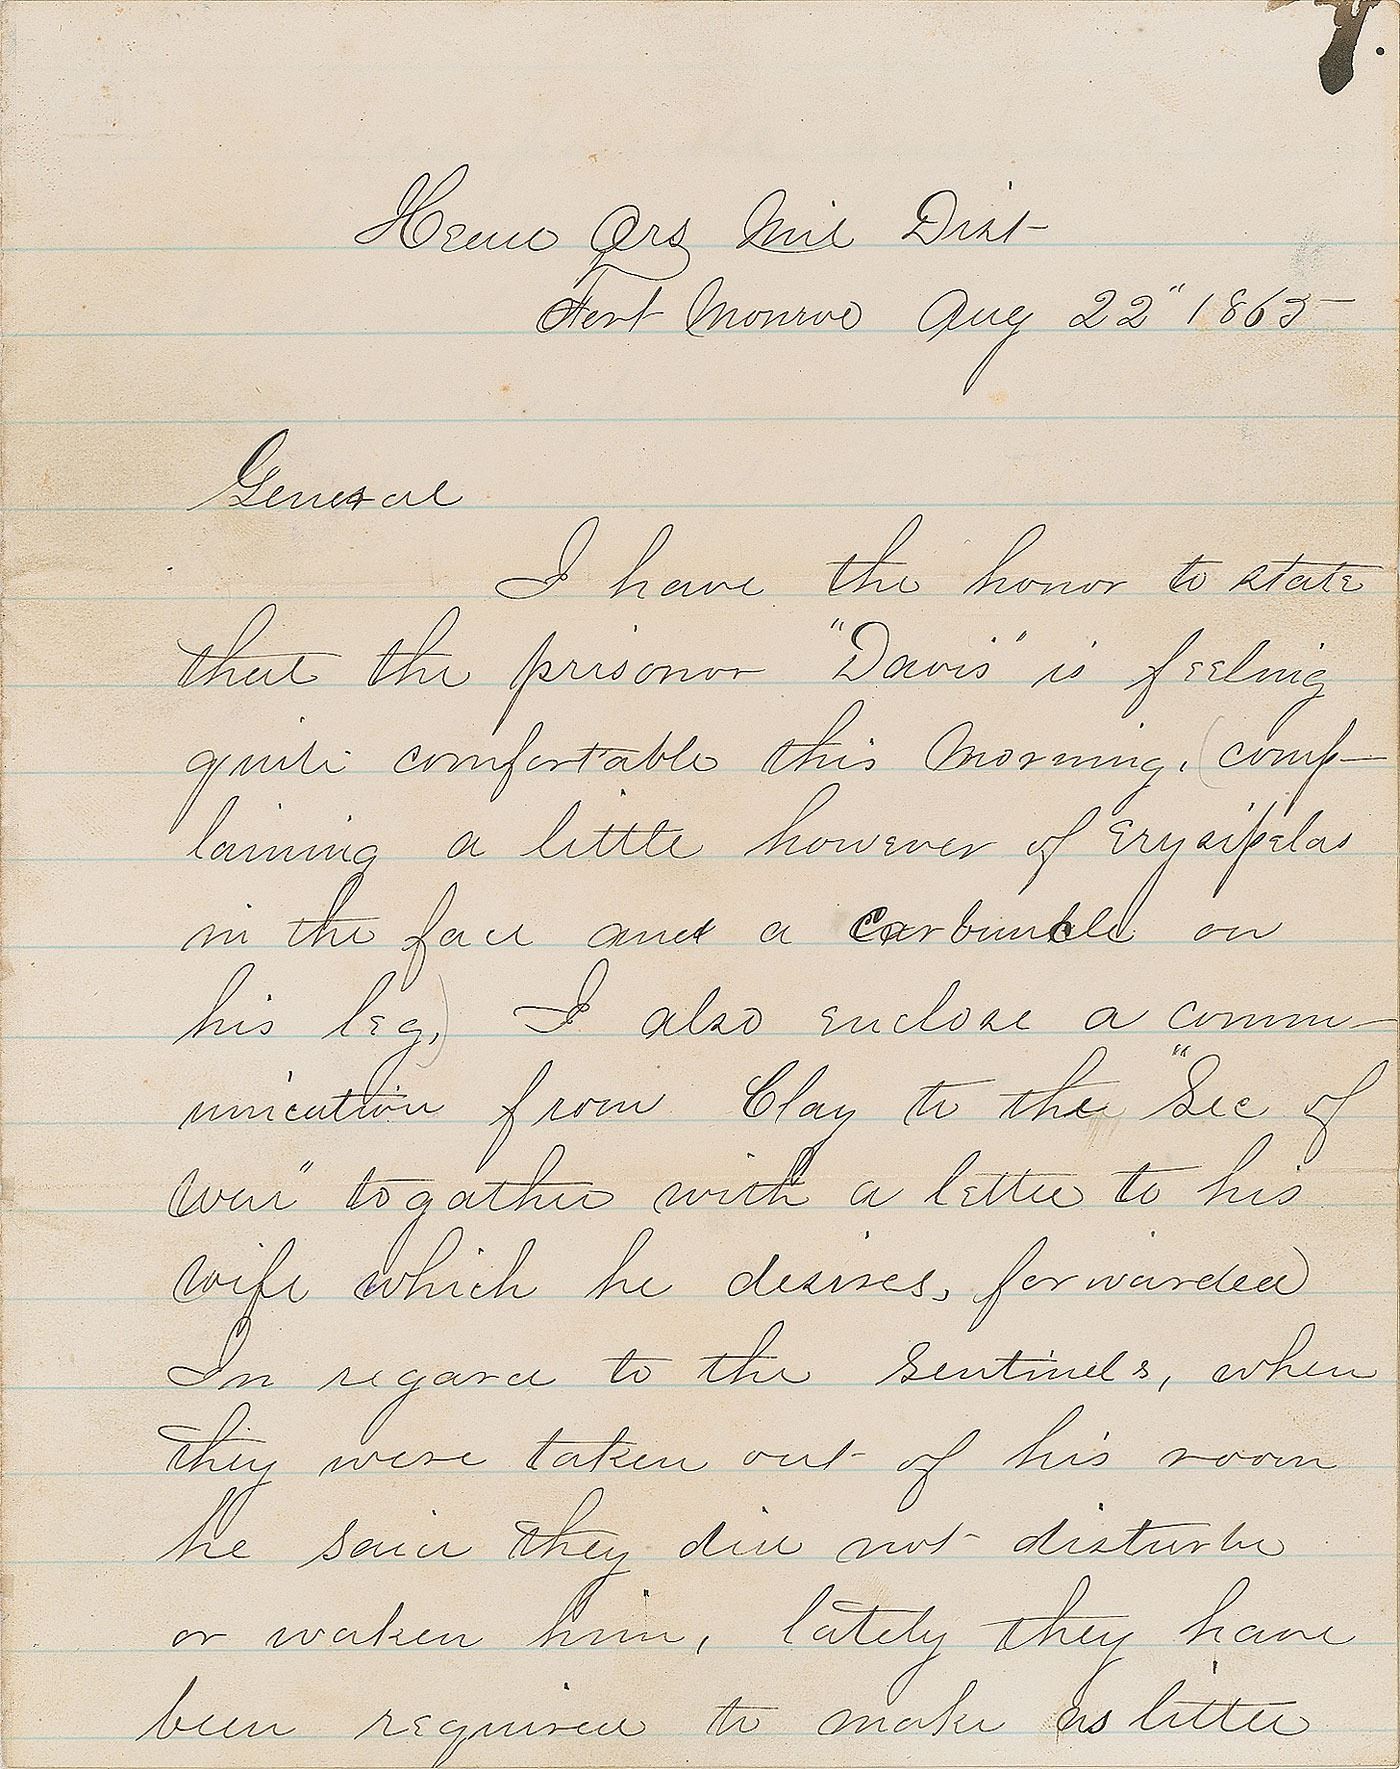 Head Qrs Mil Dist
Fort Monroe Aug 22" 1865
General
I have the honor to state
that the prisoner "Davis" is feeling
quite comfortable this Morning, (comp-
laining a little however of Erysipelas
in the face and a Carbuncle on
his leg,) I also enclose a comm-
unication from Clay to the "Sec of
War" togather with a letter to his
wife which he desires, forwarded
In regard to the Sentinels, when
they were taken out of his room
he said they did not disturbe
or waken him, lately they have
been required to make as little